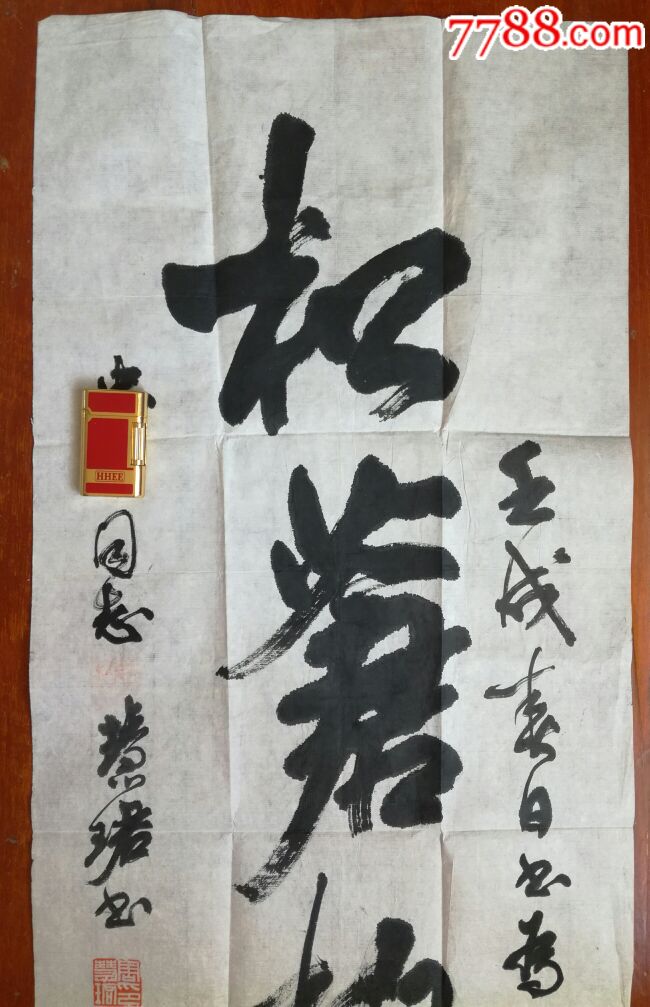 7788.com
壬戌春日书为
松蒼
同志 慧珺书
HHEE